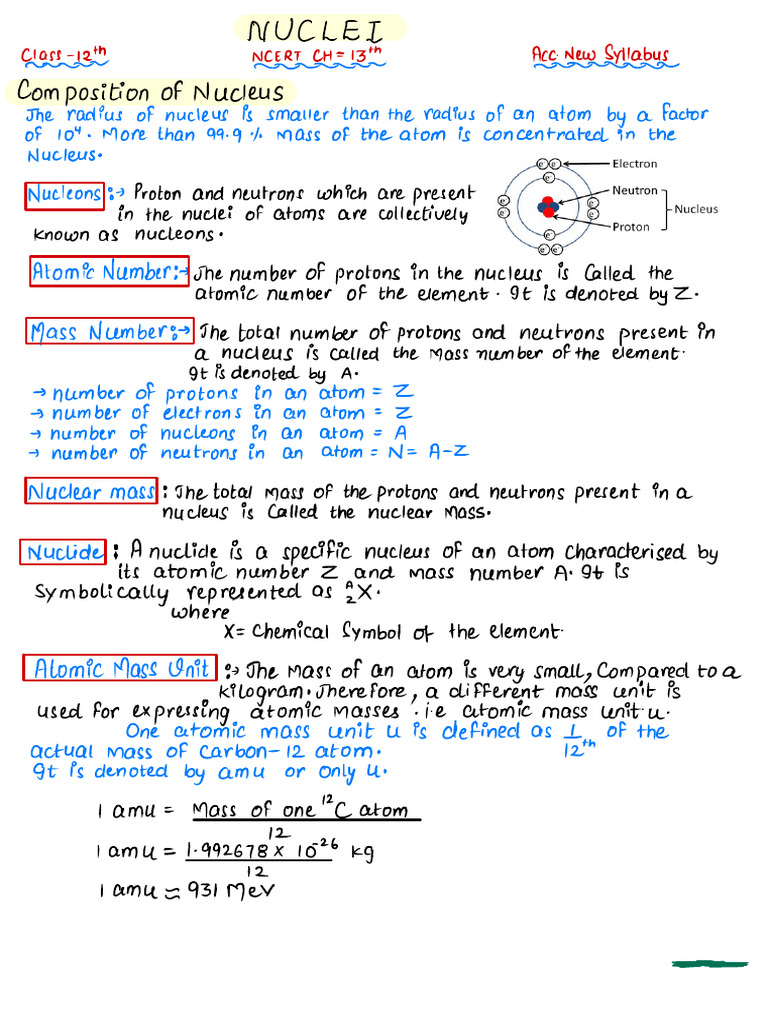 NUCLEI
Class-12th NCERT CH=13th Acc. New Syllabus
Composition of Nucleus
The radius of nucleus is smaller than the radius of an atom by a factor
of 10⁴. More than 99.9% mass of the atom is concentrated in the
Nucleus.
Electron
Neutron
Nucleus
Proton
e⁻ e⁻
e⁻
e⁻ e⁻
e⁻ e⁻
e⁻
e⁻ e⁻
Nucleons :→ Proton and neutrons which are present
in the nuclei of atoms are collectively
known as nucleons.
Atomic Number:→ The number of protons in the nucleus is Called the
atomic number of the element. It is denoted by Z.
Mass Number:→ The total number of protons and neutrons present in
a nucleus is called the mass number of the element.
It is denoted by A.
→ number of protons in an atom = Z
→ number of electrons in an atom = Z
→ number of nucleons in an atom = A
→ number of neutrons in an atom = N = A-Z
Nuclear mass : The total mass of the protons and neutrons present in a
nucleus is Called the nuclear mass.
Nuclide : A nuclide is a specific nucleus of an atom characterised by
its atomic number Z and mass number A. It is
Symbolically represented as ᴬ₂X.
where
X= Chemical Symbol of the element.
Atomic Mass Unit :→ The mass of an atom is very small, Compared to a
kilogram. Therefore, a different mass unit is
used for expressing atomic masses .i.e atomic mass unit u.
One atomic mass unit u is defined as 1/12th of the
actual mass of Carbon-12 atom.
It is denoted by amu or only u.
1 amu = Mass of one ¹²C atom
12
1 amu = 1.992678 × 10⁻²⁶ kg
12
1 amu ≈ 931 MeV